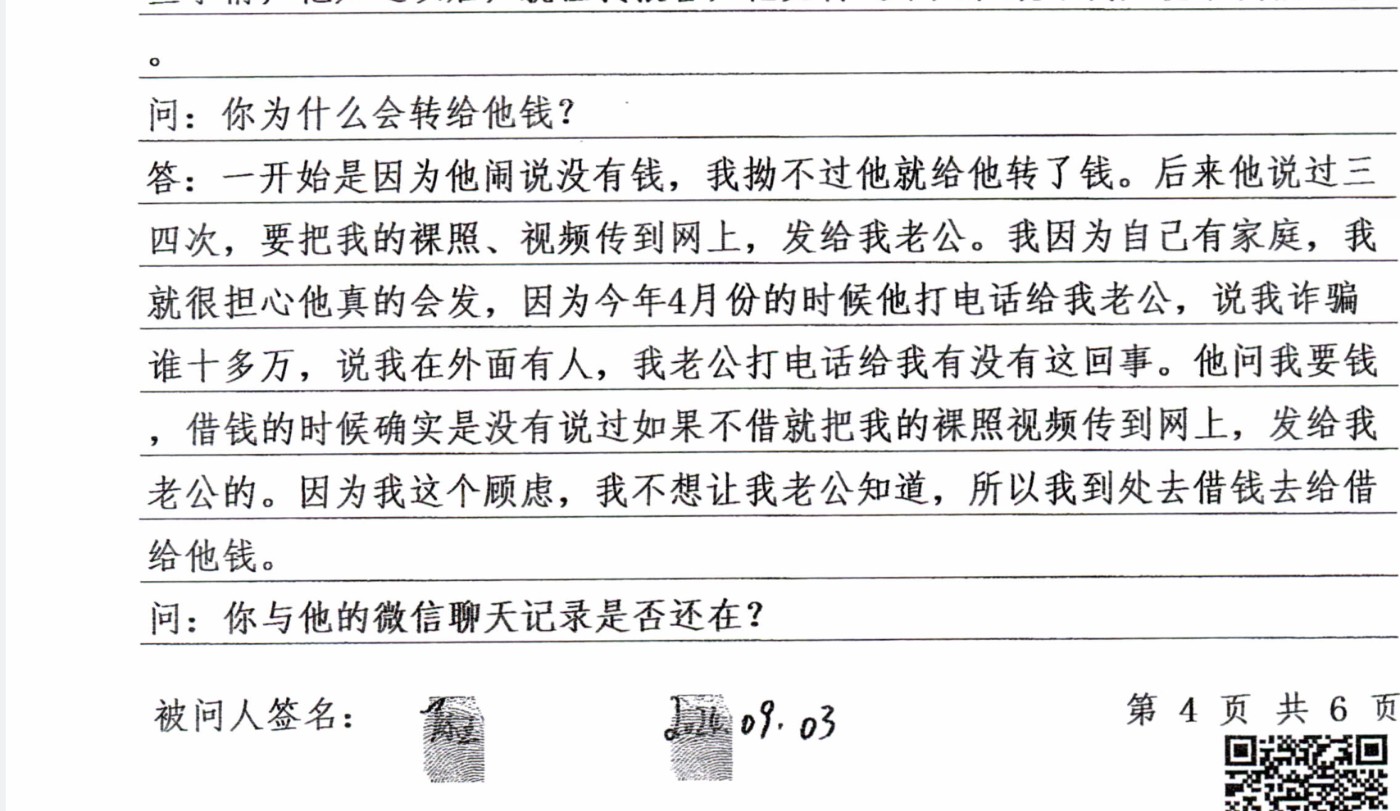 。
问：你为什么会转给他钱？
答：一开始是因为他闹说没有钱，我拗不过他就给他转了钱。后来他说过三
四次，要把我的裸照、视频传到网上，发给我老公。我因为自己有家庭，我
就很担心他真的会发，因为今年4月份的时候他打电话给我老公，说我诈骗
谁十多万，说我在外面有人，我老公打电话给我有没有这回事。他问我要钱
，借钱的时候确实是没有说过如果不借就把我的裸照视频传到网上，发给我
老公的。因为我这个顾虑，我不想让我老公知道，所以我到处去借钱去给借
给他钱。
问：你与他的微信聊天记录是否还在？
被问人签名： 09.03 第 4 页 共 6 页